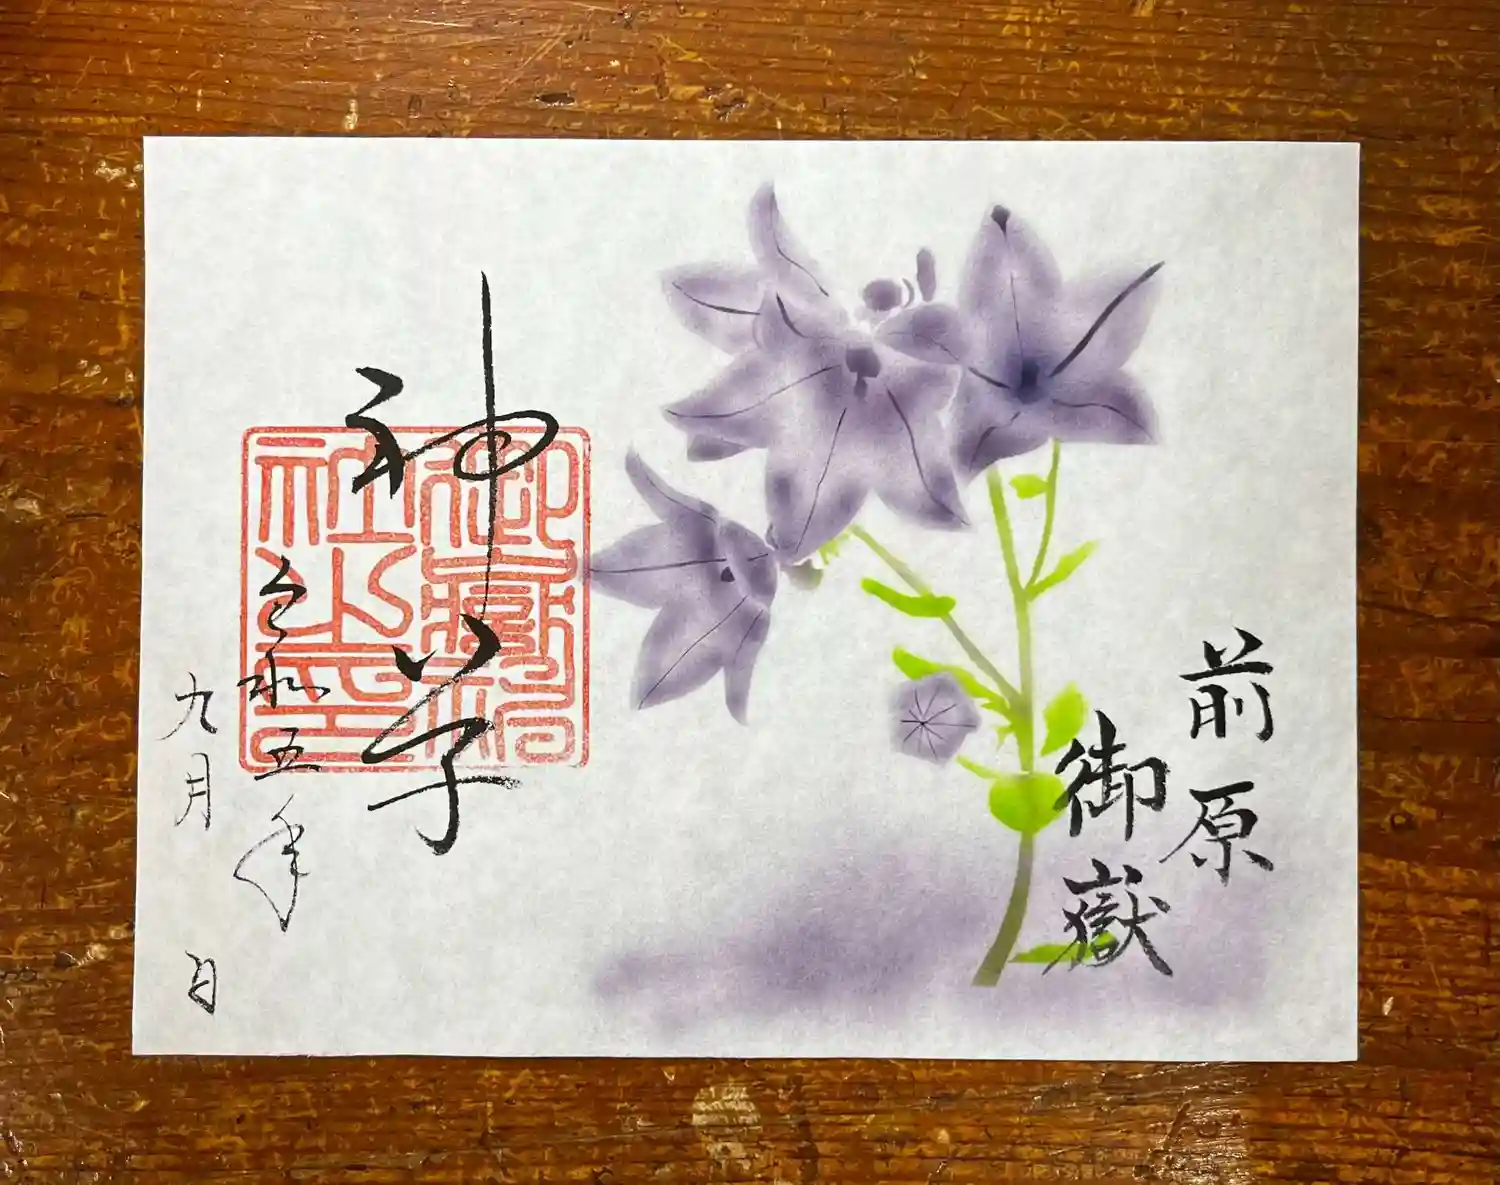 前原
御嶽
神
御嶽神
社之印
令和五年
九月 日